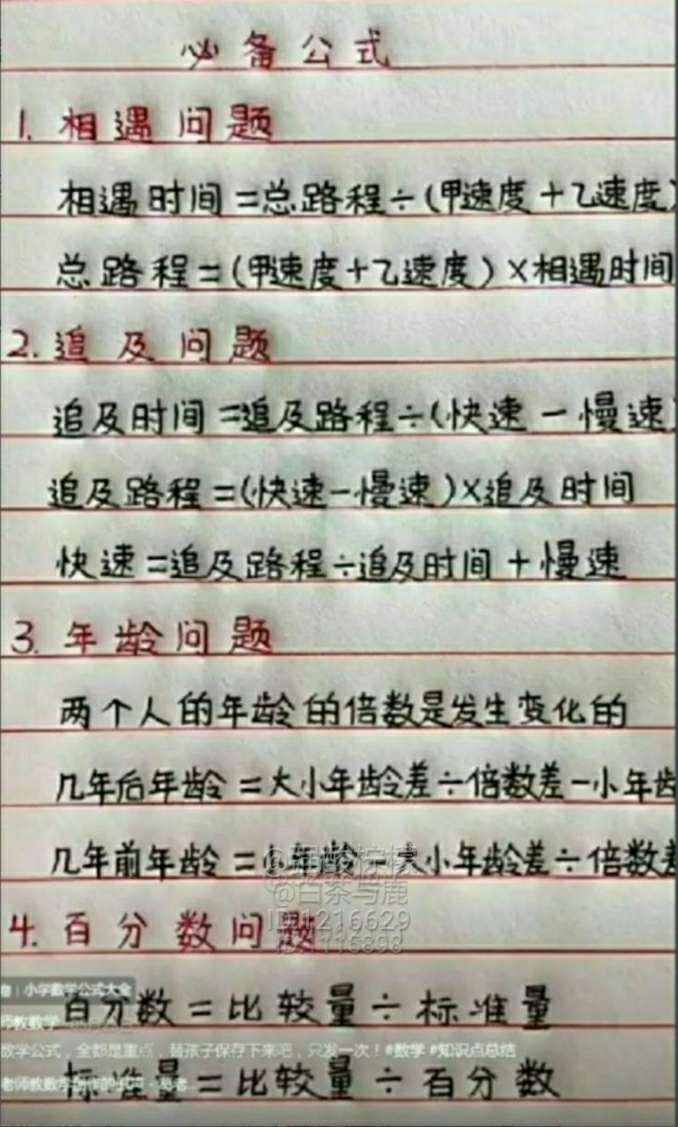 必备公式
1. 相遇问题
相遇时间=总路程÷(甲速度+乙速度)
总路程=(甲速度+乙速度)×相遇时间
2. 追及问题
追及时间=追及路程÷(快速-慢速)
追及路程=(快速-慢速)×追及时间
快速=追及路程÷追及时间+慢速
3. 年龄问题
两个人的年龄的倍数是发生变化的
几年后年龄=大小年龄差÷倍数差-小年龄
几年前年龄=小年龄-大小年龄差÷倍数差
@白茶与鹿
ID:1216629
4. 百分数问题
小学数学公式大全
百分数=比较量÷标准量
师教数学
数学公式，全都是重点，替孩子保存下来吧，只发一次！#数学 #知识点总结
标准量=比较量÷百分数